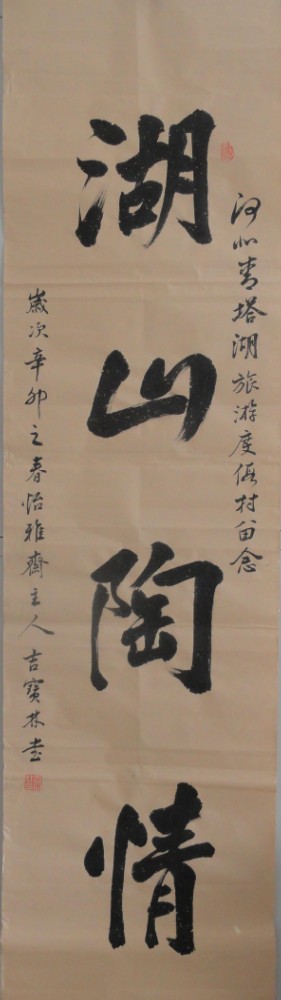 河北青塔湖旅游度假村留念
湖山陶情
歲次辛卯之春怡雅齋主人吉寶林書